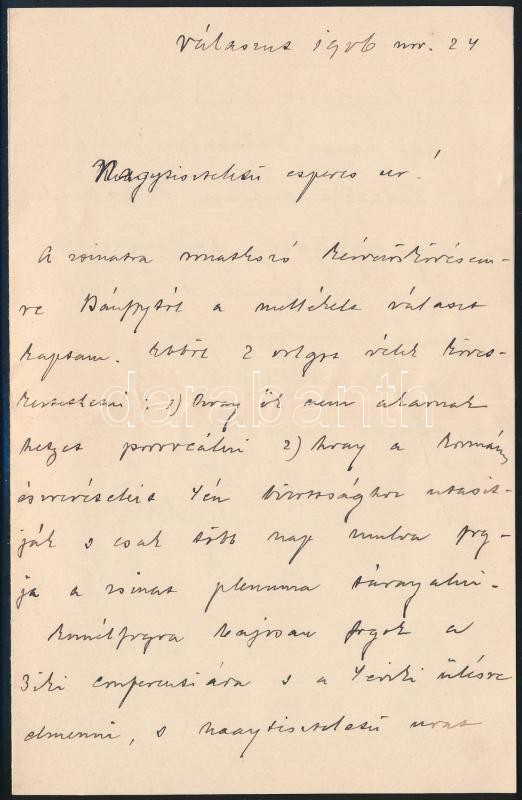 Válaszút 1906 nov. 24
Nagytiszteletű esperes úr!
A zsinatra vonatkozó kérdezősködésem-
re Bánffytól a mellékelt választ
kaptam. Ebből 2 dolgot vélek követ-
keztetni: 1) hogy ők nem akarnak
provocálni 2) hogy a kormány
észrevételeit 4én bizottsághoz utasít-
ják s csak több nap mulva fog-
ja a zsinat plenuma tárgyalni.
Ennélfogva bajosan fogok a
3iki conferentiára s a 4eiki ülésre
elmenni, s nagytiszteletű urat
darabanth